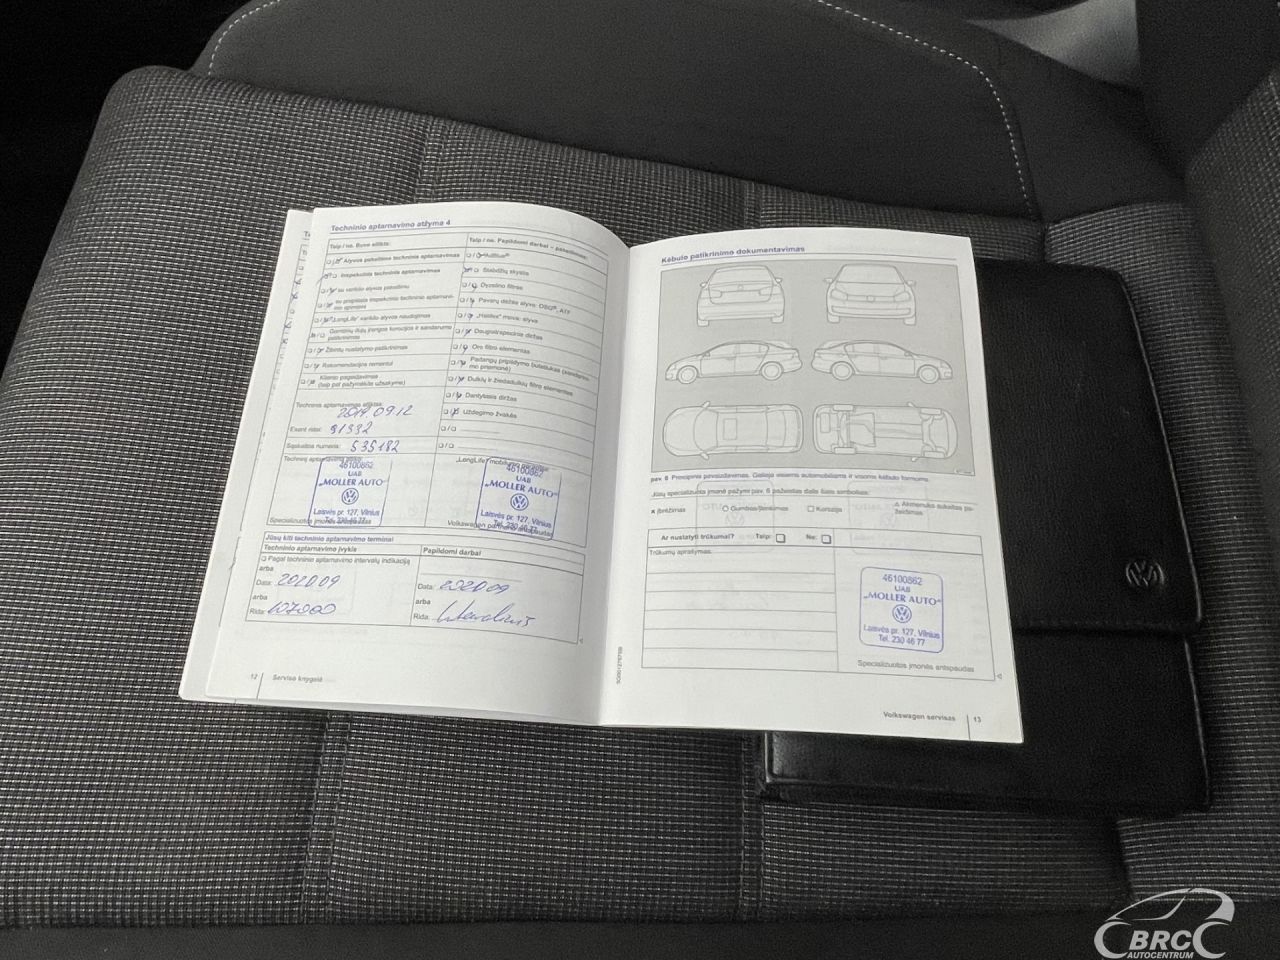 Techninio aptarnavimo atžyma 4
Taip / ne. Buvo atlikta:
Alyvos pakeitimo techninis aptarnavimas
Inspekcinis techninis aptarnavimas
su variklio alyvos pakeitimu
su praplėsta inspekcinio techninio aptarnavi-
mo apimtimi
„LongLife“ variklio alyvos naudojimas
Gamtinių dujų įrangos korozijos ir sandarumo
patikrinimas
Žibintų nustatymo patikrinimas
Rekomendacijos remontui
Kliento pageidavimas
(taip pat pažymėkite užsakyme)
Techninis aptarnavimas atliktas:
2019.09.12
Esant ridai: 91332
Sąskaitos numeris: 535182
Techninį aptarnavimą atliko
46100862
UAB
„MOLLER AUTO“
Laisvės pr. 127, Vilnius
Tel. 230 46 77
Specializuotos įmonės antspaudas
Taip / ne. Papildomi darbai – pakeitimas:
AdBlue®
Stabdžių skystis
Dyzelino filtras
Pavarų dėžės alyva: DSG®, ATF
„Haldex“ mova: alyva
Daugiatrapecinis diržas
Oro filtro elementas
Padangų pripildymo butaliukas (sandarini-
mo priemonė)
Dulkių ir žiedadulkių filtro elementas
Dantytasis diržas
Uždegimo žvakės
46100862
UAB
„MOLLER AUTO“
Laisvės pr. 127, Vilnius
Tel. 230 46 77
Volkswagen partnerio antspaudas
Jūsų kiti techninio aptarnavimo terminai
Techninio aptarnavimo įvykis
Pagal techninio aptarnavimo intervalų indikaciją
arba
Data: 2020.09
arba
Rida: 107000
Papildomi darbai
Data: 2020.09
arba
Rida:
12 Serviso knygelė
Kėbulo patikrinimo dokumentavimas
pav. 6 Principinis pavaizdavimas. Galioja visiems automobiliams ir visoms kėbulo formoms.
Jūsų specializuota įmonė pažymi pav. 6 pažeistas dalis šiais simboliais:
x Įbrėžimas
Gumbas/įlenkimas
Korozija
Akmenuko sukeltas pa-
žeidimas
Ar nustatyti trūkumai? Taip: Ne:
Trūkumų aprašymas:
46100862
UAB
„MOLLER AUTO“
Laisvės pr. 127, Vilnius
Tel. 230 46 77
Specializuotos įmonės antspaudas
Volkswagen servisas 13
BRC
AUTOCENTRUM